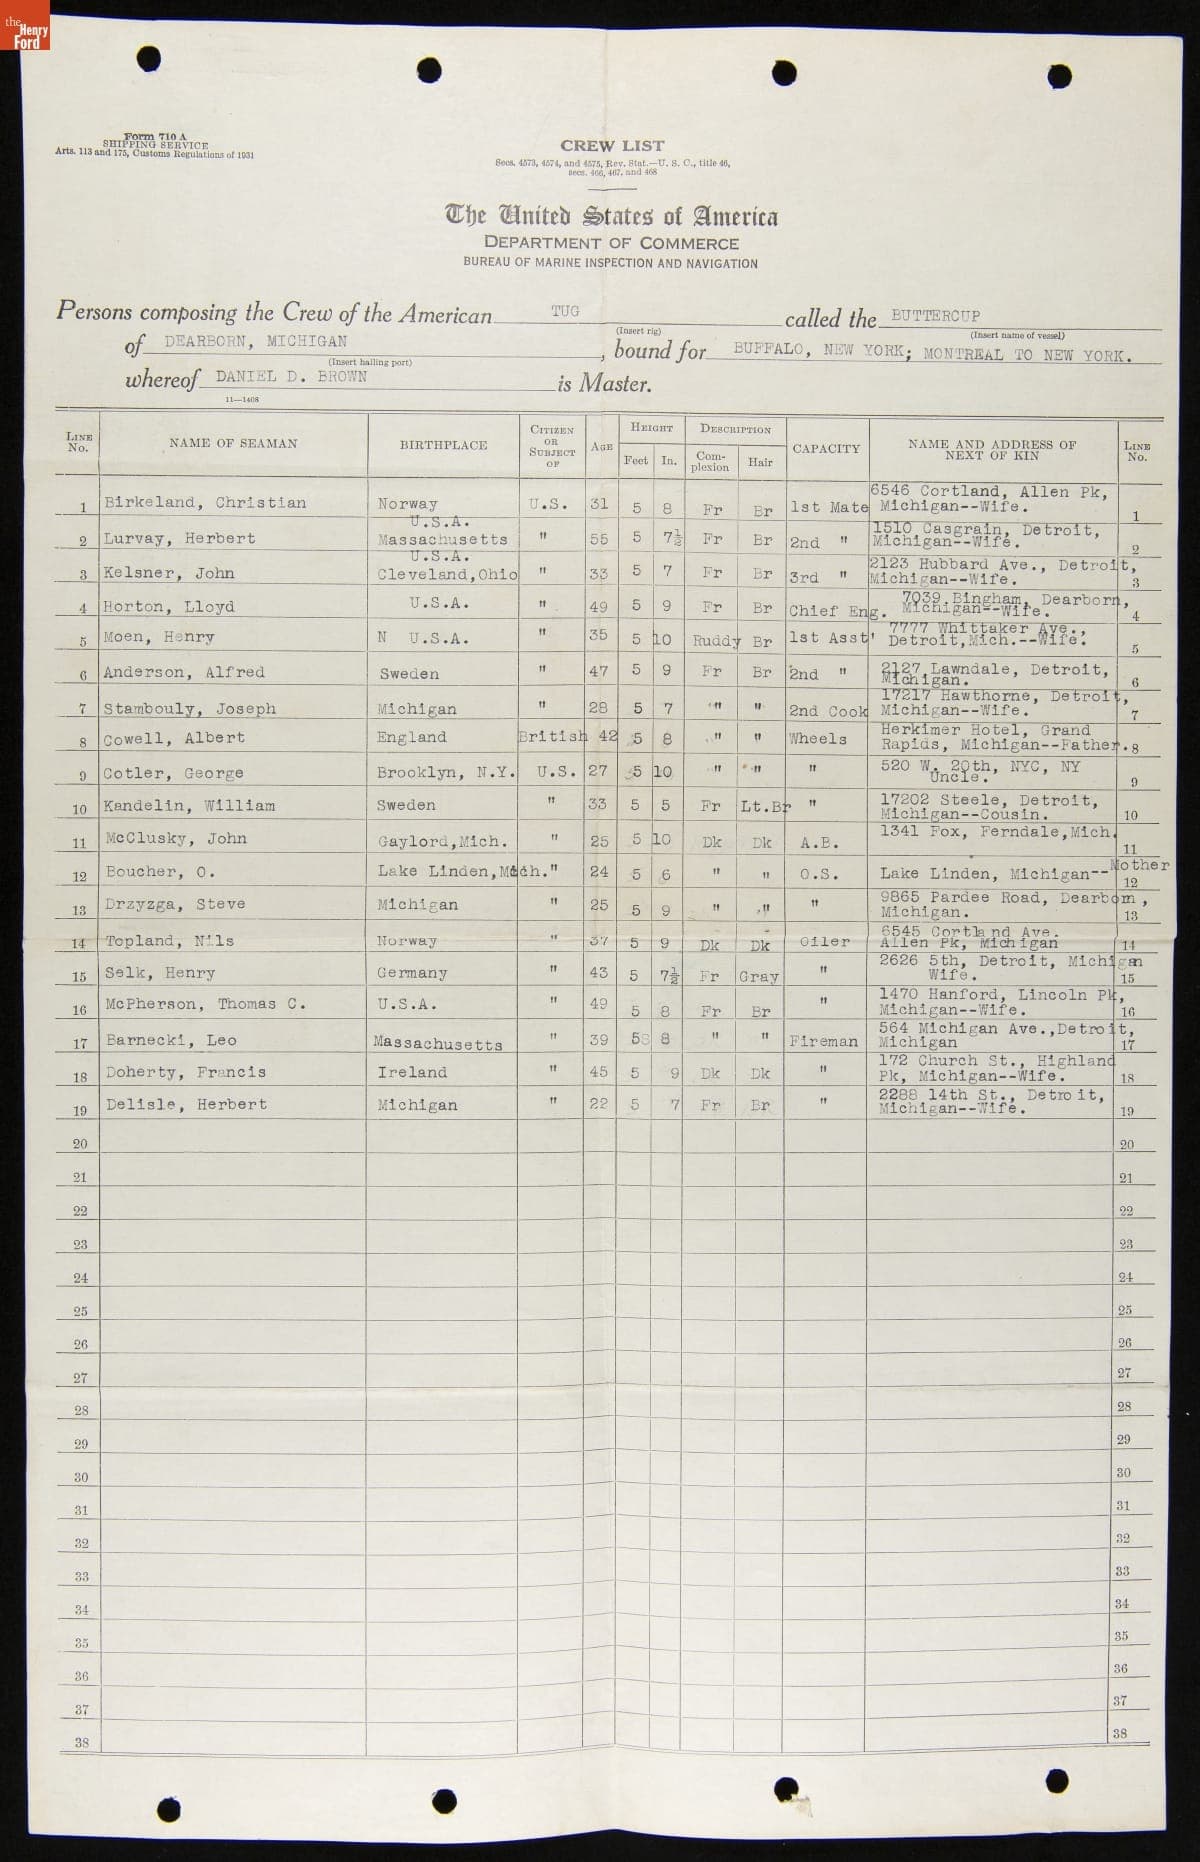 the
Henry
Ford
Form 710 A
SHIPPING SERVICE
Arts. 113 and 175, Customs Regulations of 1931
CREW LIST
Secs. 4573, 4574, and 4575, Rev. Stat.—U. S. C., title 46,
secs. 466, 467, and 468
The United States of America
DEPARTMENT OF COMMERCE
BUREAU OF MARINE INSPECTION AND NAVIGATION
Persons composing the Crew of the American TUG called the BUTTERCUP
(Insert rig) (Insert name of vessel)
of DEARBORN, MICHIGAN, bound for BUFFALO, NEW YORK; MONTREAL TO NEW YORK.
(Insert hailing port)
whereof DANIEL D. BROWN is Master.
11—1408
LINE No. NAME OF SEAMAN BIRTHPLACE CITIZEN OR SUBJECT OF AGE HEIGHT Feet In. DESCRIPTION Complexion Hair CAPACITY NAME AND ADDRESS OF NEXT OF KIN LINE No.
1 Birkeland, Christian Norway U.S. 31 5 8 Fr Br 1st Mate 6546 Cortland, Allen Pk, Michigan--Wife. 1
2 Lurvay, Herbert U.S.A. Massachusetts " 55 5 7½ Fr Br 2nd " 1510 Casgrain, Detroit, Michigan--Wife. 2
3 Kelsner, John U.S.A. Cleveland,Ohio " 33 5 7 Fr Br 3rd " 2123 Hubbard Ave., Detroit, Michigan--Wife. 3
4 Horton, Lloyd U.S.A. " 49 5 9 Fr Br Chief Eng. 7039 Bingham, Dearborn, Michigan--Wife. 4
5 Moen, Henry N U.S.A. " 35 5 10 Ruddy Br 1st Asst' 7777 Whittaker Ave., Detroit,Mich.--Wife. 5
6 Anderson, Alfred Sweden " 47 5 9 Fr Br 2nd " 2127 Lawndale, Detroit, Michigan. 6
7 Stambouly, Joseph Michigan " 28 5 7 " " 2nd Cook 17217 Hawthorne, Detroit, Michigan--Wife. 7
8 Cowell, Albert England British 42 5 8 " " Wheels Herkimer Hotel, Grand Rapids, Michigan--Father. 8
9 Cotler, George Brooklyn, N.Y. U.S. 27 5 10 " " " 520 W. 20th, NYC, NY Uncle. 9
10 Kandelin, William Sweden " 33 5 5 Fr Lt.Br " 17202 Steele, Detroit, Michigan--Cousin. 10
11 McClusky, John Gaylord,Mich. " 25 5 10 Dk Dk A.B. 1341 Fox, Ferndale,Mich. 11
12 Boucher, O. Lake Linden,Mich. " 24 5 6 " " O.S. Lake Linden, Michigan--Mother 12
13 Drzyzga, Steve Michigan " 25 5 9 " " " 9865 Pardee Road, Dearborn, Michigan. 13
14 Topland, Nils Norway " 37 5 9 Dk Dk Oiler 6545 Cortland Ave. Allen Pk, Michigan 14
15 Selk, Henry Germany " 43 5 7½ Fr Gray " 2626 5th, Detroit, Michigan Wife. 15
16 McPherson, Thomas C. U.S.A. " 49 5 8 Fr Br " 1470 Hanford, Lincoln Pk, Michigan--Wife. 16
17 Barnecki, Leo Massachusetts " 39 58 8 " " Fireman 564 Michigan Ave.,Detroit, Michigan 17
18 Doherty, Francis Ireland " 45 5 9 Dk Dk " 172 Church St., Highland Pk, Michigan--Wife. 18
19 Delisle, Herbert Michigan " 22 5 7 Fr Br " 2288 14th St., Detroit, Michigan--Wife. 19
20 20
21 21
22 22
23 23
24 24
25 25
26 26
27 27
28 28
29 29
30 30
31 31
32 32
33 33
34 34
35 35
36 36
37 37
38 38